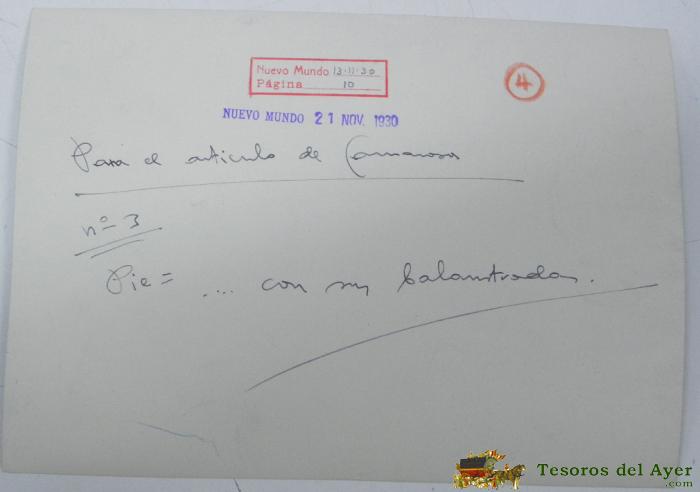 Nuevo Mundo 13-11-30
Página 10
4
NUEVO MUNDO 21 NOV. 1930
Para el articulo de Camarasa
nº 3
Pie = .... con sus balaustradas.
Tesoros del Ayer
.com